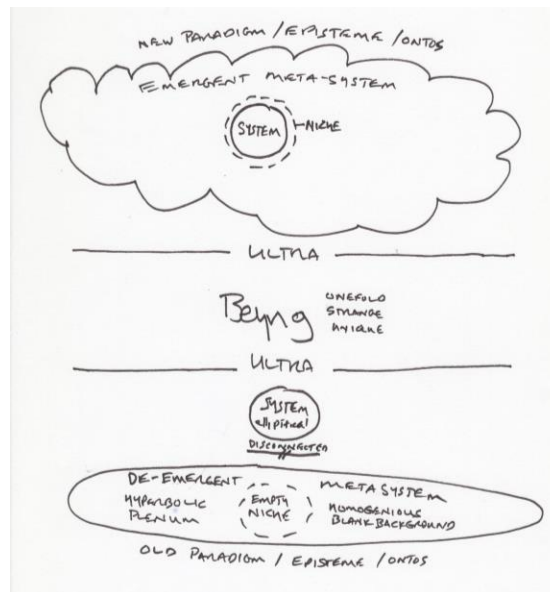 NEW PARADIGM / EPISTEME / ONTOS
EMERGENT META-SYSTEM
SYSTEM
NICHE
ULTRA
Beyng
ONEFOLD
STRANGE
UNIQUE
ULTRA
SYSTEM
elliptical
DISCONNECTED
DE-EMERGENT METASYSTEM
HYPERBOLIC PLENUM
EMPTY NICHE
HOMOGENIOUS BLANK BACKGROUND
OLD PARADIGM / EPISTEME / ONTOS